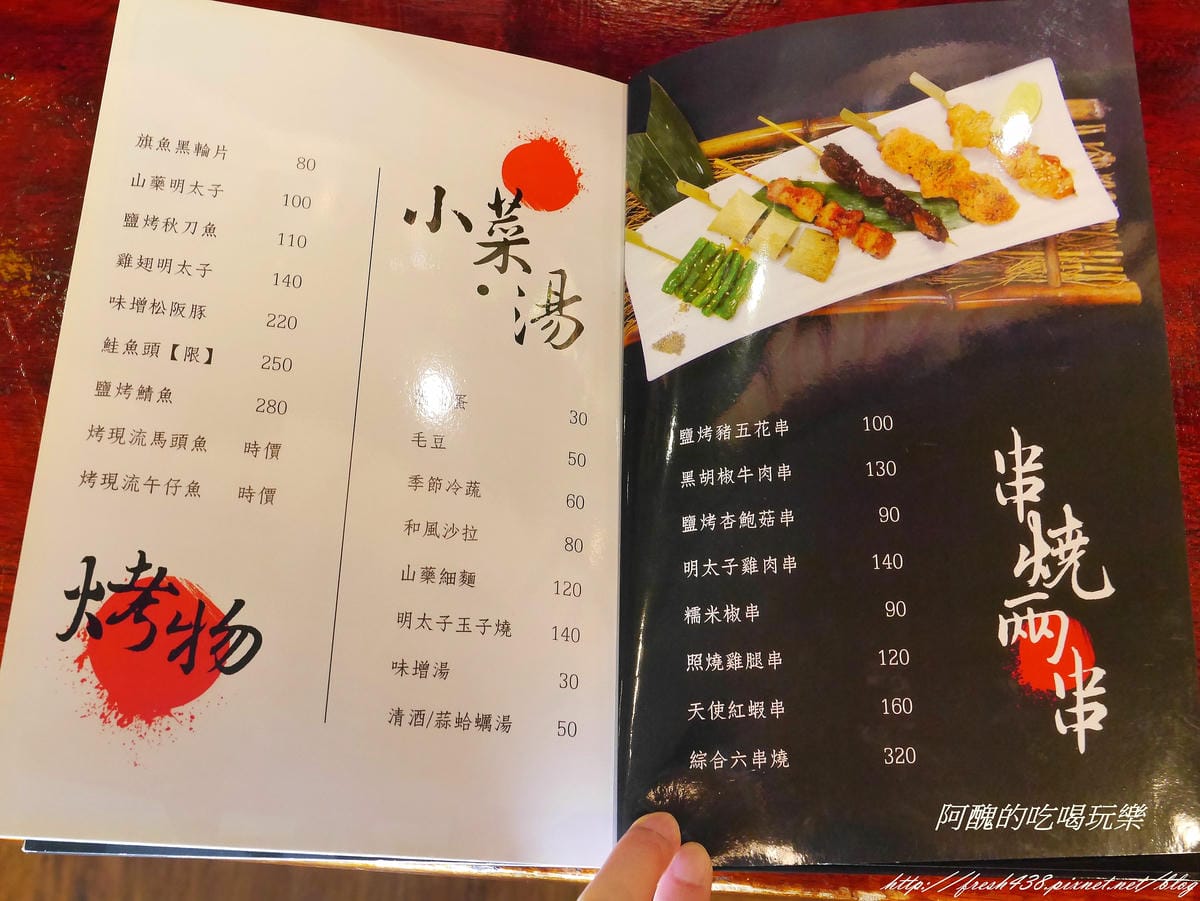 旗魚黑輪片 80
山藥明太子 100
鹽烤秋刀魚 110
雞翅明太子 140
味增松阪豚 220
鮭魚頭【限】 250
鹽烤鯖魚 280
烤現流馬頭魚 時價
烤現流午仔魚 時價
烤物
小菜·湯
蛋 30
毛豆 50
季節冷蔬 60
和風沙拉 80
山藥細麵 120
明太子玉子燒 140
味增湯 30
清酒/蒜蛤蠣湯 50
鹽烤豬五花串 100
黑胡椒牛肉串 130
鹽烤杏鮑菇串 90
明太子雞肉串 140
糯米椒串 90
照燒雞腿串 120
天使紅蝦串 160
綜合六串燒 320
串燒兩串
阿醜的吃喝玩樂
http://fresh438.pixnet.net/blog